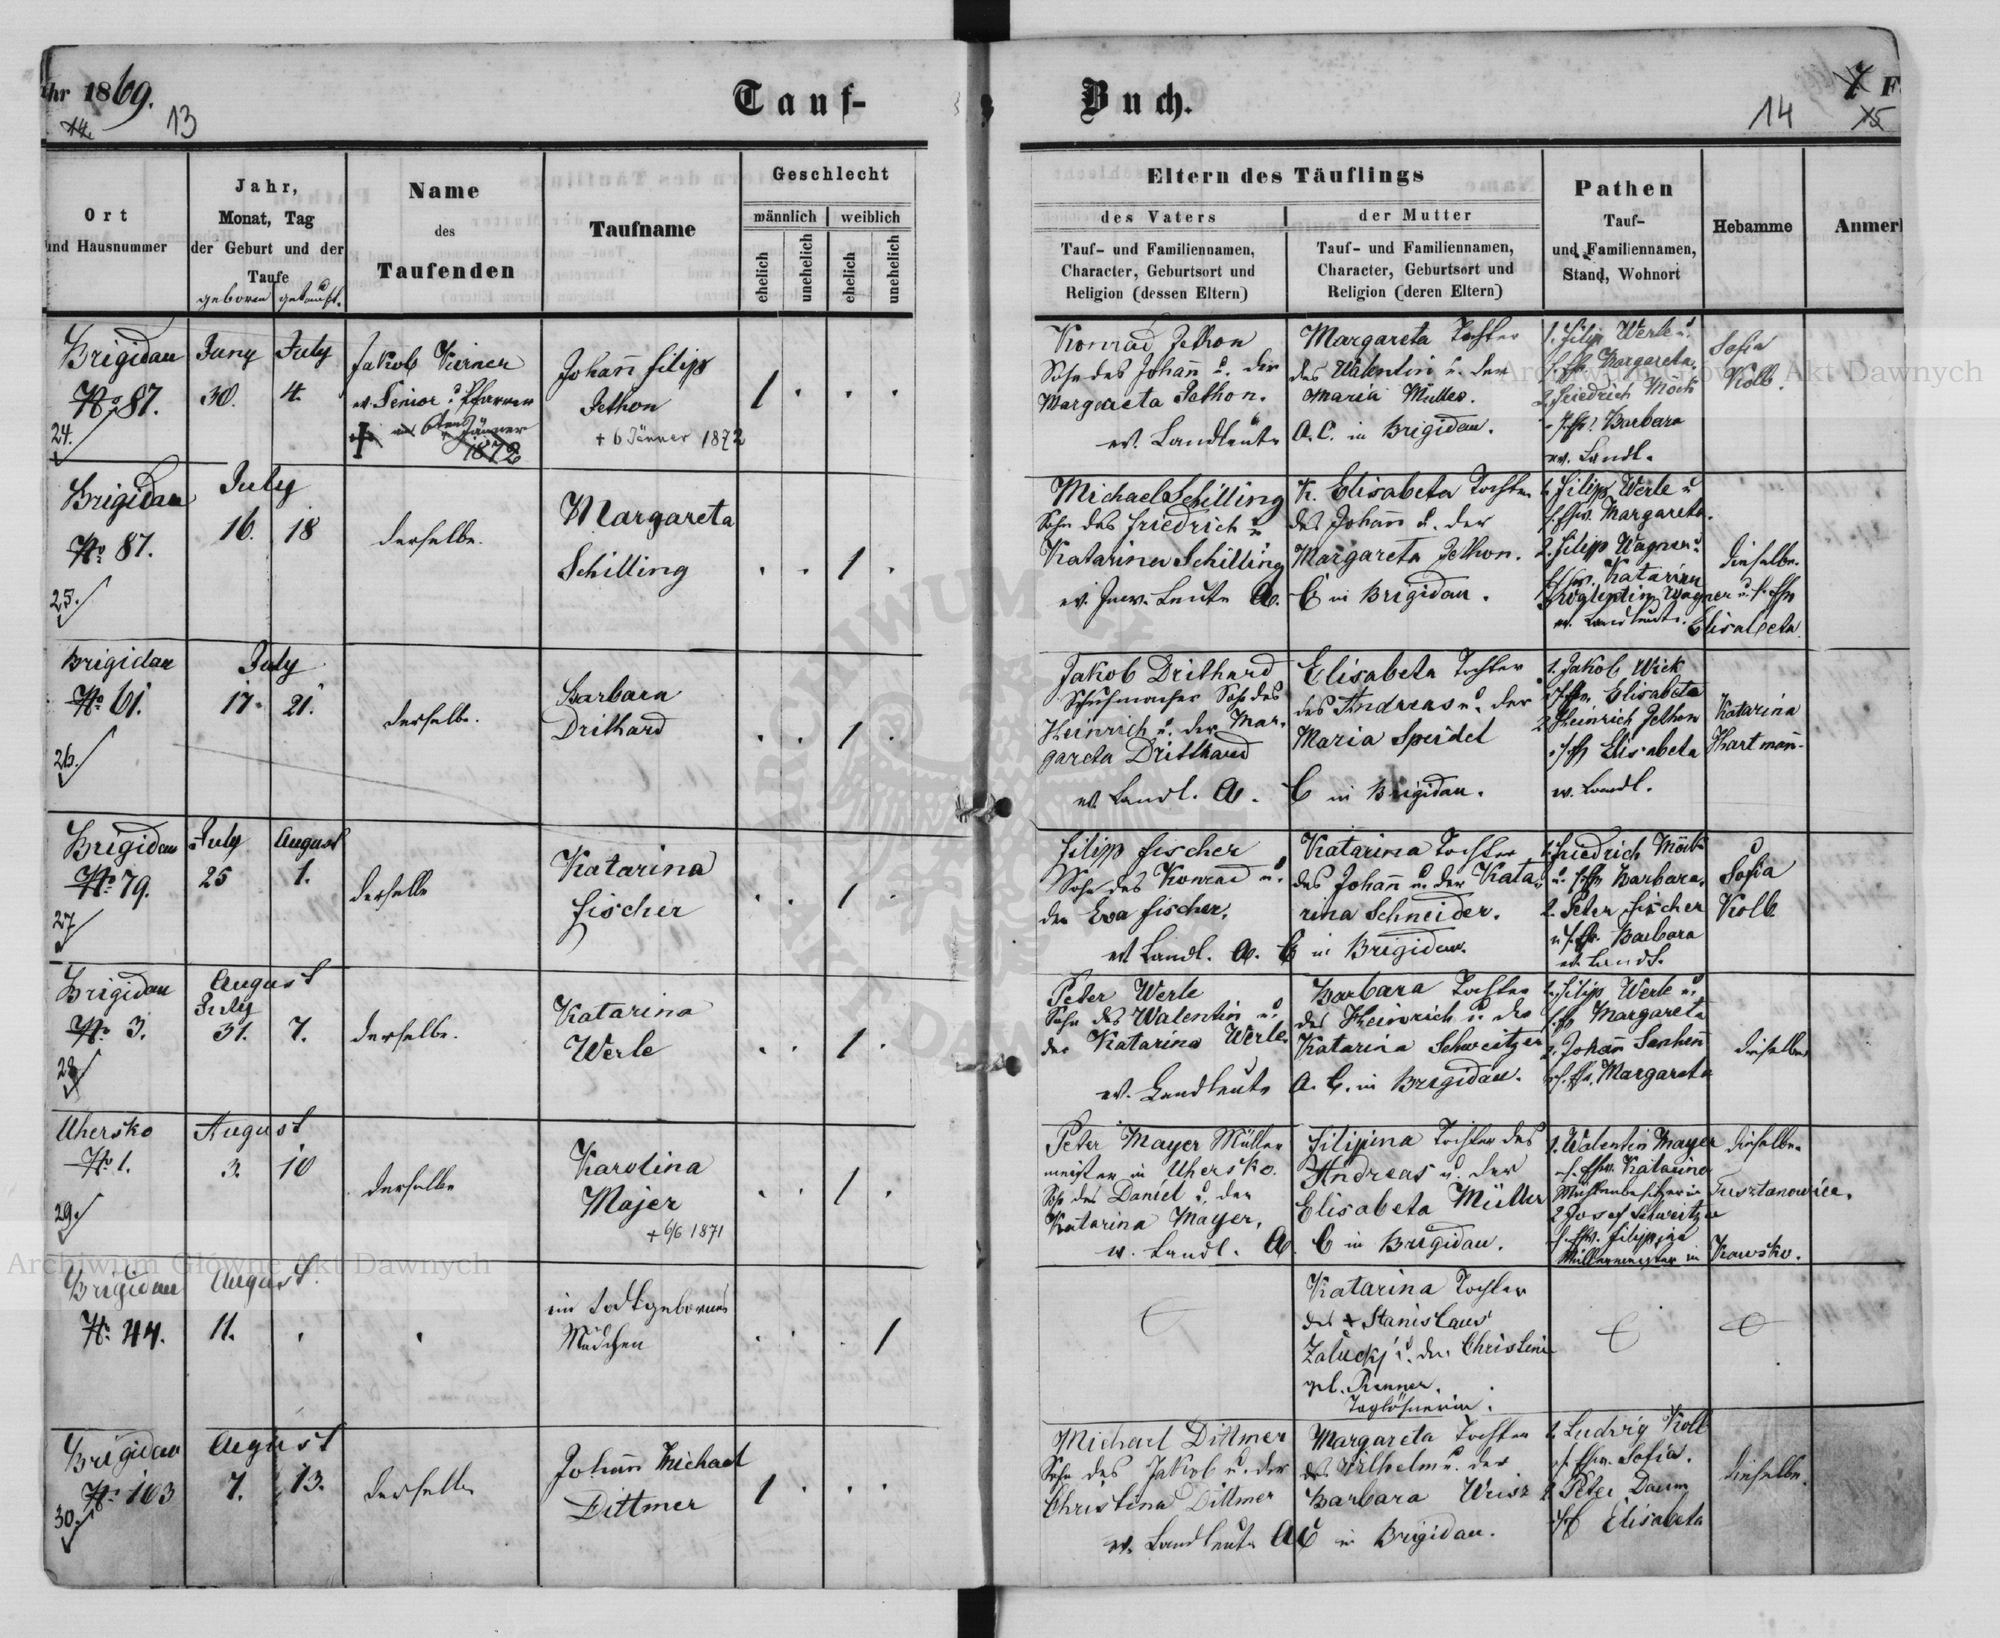 hr 1869.
Tauf-
Buch.
7 F
14.
13
14
15
Ort
und Hausnummer
Jahr,
Monat, Tag
der Geburt und der
Taufe
geboren getauft.
Name
des
Taufenden
Taufname
Geschlecht
männlich weiblich
ehelich
unehelich
ehelich
unehelich
Eltern des Täuflings
des Vaters
Tauf- und Familiennamen,
Character, Geburtsort und
Religion (dessen Eltern)
der Mutter
Tauf- und Familiennamen,
Character, Geburtsort und
Religion (deren Eltern)
Pathen
Tauf-
und Familiennamen,
Stand, Wohnort
Hebamme
Anmer
Brigidau
No 87.
24.
Juny July
30. 4.
Jakob Kerner
ev. Senior u. Pfarrer
6ten Jänner
1872
Johann Filip
Jethon
+ 6 Jänner 1872
1 . . .
Konrad Jethon
Sohn des Johann u. der
Margareta Jethon.
ev. Landleute
Margareta Tochter
des Valentin u. der
Maria Müller.
A. C. in Brigidau.
1. Filip Werle u.
Margareta.
2. Friedrich Möck
Barbara
ev. Landl.
Sofia
Kolb.
Brigidau
No 87.
25.
July
16. 18
derselbe.
Margareta
Schilling
. . 1 .
Michael Schilling
Sohn des Friedrich u
Katarina Schilling
ev. Inw. Leute A.
K. Elisabeta Tochter
des Johann u. der
Margareta Jethon.
C in Brigidau.
1. Filipp Werle u
Margareta.
2. Filipp Wagner u.
Katarina
Wagner u. s. Ehw
ev. Landleute. Elisabeta.
dieselbe.
Brigidau
No 61.
26.
July
17. 21.
derselbe.
Barbara
Drithard
. . 1 .
Jakob Drithard
Schuhmacher Sohn des
Heinrich u. der Mar-
gareta Dritthard
ev. Landl. A.
Elisabeta Tochter
des Andreas u. der
Maria Speidel
C in Brigidau.
1. Jakob Wick
Elisabeta
2. Heinrich Jethon
Elisabeta
ev. Landl.
Katarina
Hartmann.
Brigidau
No 79.
27
July August
25 1.
derselbe
Katarina
Fischer
. . 1 .
Filipp Fischer
Sohn des Konrad u.
der Eva Fischer.
ev. Landl. A.
Katarina Tochter
des Johann u. der Kata-
rina Schneider.
C in Brigidau.
1. Friedrich Möck
Barbara.
2. Peter Fischer
Barbara
ev. Landl.
Sofia
Kolb
Brigidau
No 3.
28
August
July
31. 7.
derselbe.
Katarina
Werle
. . 1 .
Peter Werle
Sohn des Valentin u.
der Katarina Werle.
ev. Landleute
Barbara Tochter
des Heinrich u. der
Katarina Schweitzer
A. C. in Brigidau.
1. Filip Werle u.
Margareta
2. Johann
Margareta
dieselbe
Uhersko
No 1.
29.
August
2. 10
derselbe
Karolina
Majer
+ 6/6 1871
. . 1 .
Peter Mayer Müller
meister in Uhersko.
Sohn des Daniel u. der
Katarina Mayer,
ev. Landl. A.
Filipina Tochter des
Andreas u. der
Elisabeta Müller
C in Brigidau.
1. Valentin Mayer
Katarina
Mühlenbesitzer in Tusztanowice.
2 Josef Schweitzer
Filippina
Müllermeister in Kawsko.
dieselbe.
Brigidau
No 44.
August.
11. .
.
ein todtgebornes
Mädchen
. . . 1
Katarina Tochter
des + Stanislaus
Zalucki u. der Christine
gb. Renner.
Taglöhnerin.
Brigidau
No 103
30.
August
7. 13.
derselbe
Johann Michael
Dittmer
1 . . .
Michael Dittmer
Sohn des Jakob u. der
Christina Dittmer
ev. Landleute A
Margareta Tochter
des Wilhelm u. der
Barbara Weisz
C in Brigidau.
1. Ludwig Kolb
Sofia.
2 Peter Daum
Elisabeta
dieselbe.
Archiwum Główne Akt Dawnych
Archiwum Główne Akt Dawnych